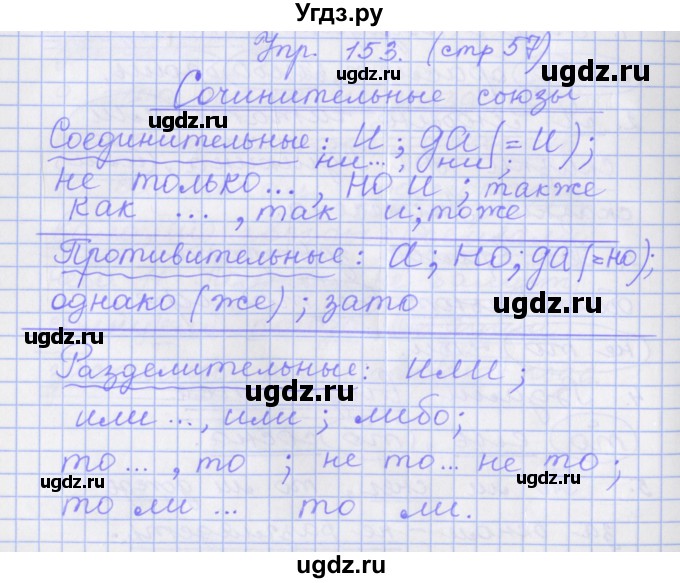 Угдз.ру
Упр. 153. (стр 57)
ugdz.ru
ugdz.ru
Сочинительные союзы
ugdz.ru
Соединительные: и; да (= и);
ни..., ни;
не только..., но и; также
ugdz.ru
как ..., так и; тоже
Противительные: а; но; да (=но);
однако (же); зато
ugdz.ru
ugdz.ru
Разделительные: или;
ugdz.ru
или ..., или; либо;
ugdz.ru
то ..., то; не то ... не то;
ugdz.ru
то ли ... то ли.
ugdz.ru
ugdz.ru